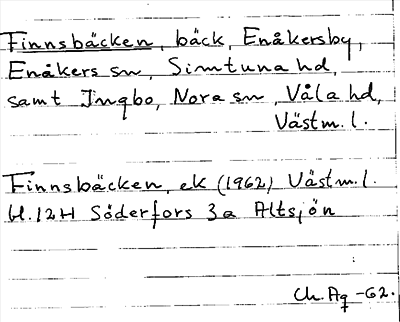 Finnsbäcken, bäck, Enåkersby,
Enåkers sn, Simtuna hd,
samt Ingbo, Nora sn, Våla hd,
Västm.l.
Finnsbäcken, ek (1962) Västm.l.
Bl. 12H Söderfors 3a Altsjön
Ch. Ag -62.